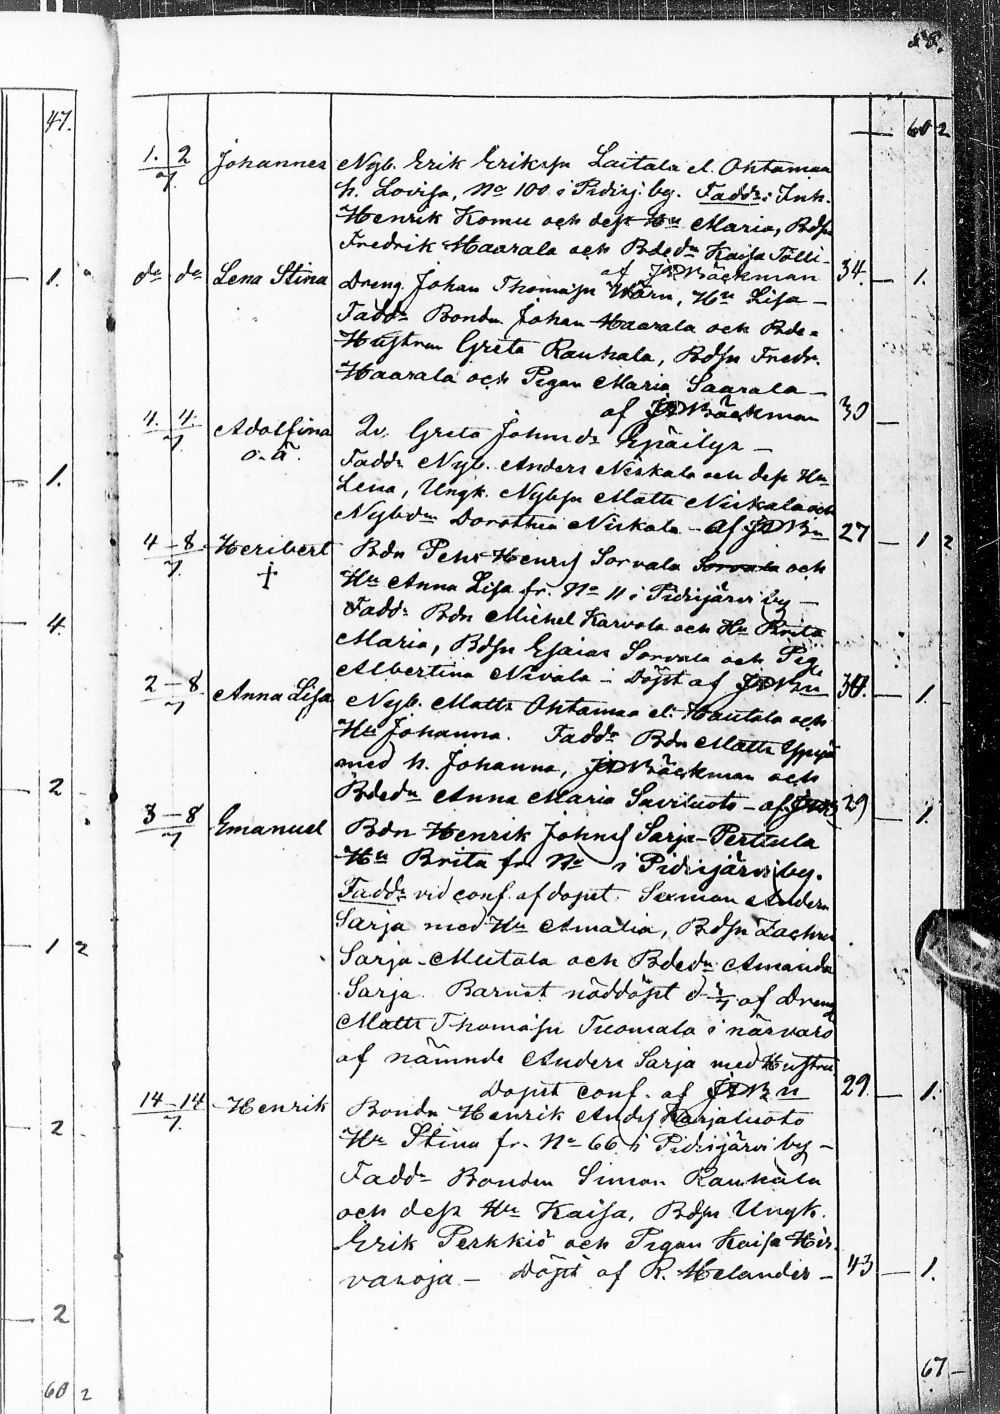 47.
60 2
1. 2 Johannes Nyb. Erik Eriksſn Laitala el. Ohtamaa
7. h. Loviſa, No 100 i Pidisj. by. Faddr: Inh.
Henrik Komu och deſs Hu Maria, Bdſn
Fredrik Haarala och Bdedn Kaiſa Tölli-
af JDBäckman 34. — 1.
1. do do Lena Stina Dreng Johan Thomaſſn Wärn, Hu Liſa —
Faddr Bondn Johan Haarala och Bde-
Huſtrun Greta Rauhala, Bdſn Fredr.
Haarala och Pigan Maria Saarala —
af JDBäckman 30 —
4. 4. Adolfina Qv. Greta Johnsdr Epäilys —
7. o. ä. Faddr Nyb. Anders Niskala och deſs Hu
1. Lena, Ungk. Nybſn Matts Niskala och
Nybdn Dorothea Niskala — af JDBn 27 — 1 2
4 — 8 Heribert Bdn Pehr Henrſ Sorvala Sorvala och
7. + Hu Anna Liſa fr. No 11 i Pidisjärvi by —
4. Faddr Bdn Michel Karvola och Hu Brita
Maria, Bdſn Eſaias Sorvala och Pig.
Albertina Nivala — Döpt af JDBn 38. — 1.
2 — 8 Anna Liſa Nyb. Matts Ohtamaa el. Hautala och
7 Hu Johanna. Faddr Bdn Matts
med h. Johanna, JDBäckman och
2 Bdedn Anna Maria Saviluoto — af JDB 29 — 1.
3 — 8 Emanuel Bdn Henrik Johnſ Sarja-Perttula
7 Hu Brita fr No i Pidisjärvi by.
Faddr vid conf. af dopet. Sexman Anders
Sarja med Hu Amalia, Bdſn Zachris
1 2 Sarja-Mutala och Bdedn Amanda
Sarja. Barnet nöddöpt d af Dreng
Matts Thomaſſn Tuomala i närvaro
af nämnde Anders Sarja med Huſtru
Dopet conf. af JDBn 29 — 1.
14 — 14 Henrik Bondn Henrik Andſ Karjaluoto
2 7. Hu Stina fr. No 66 i Pidisjärvi by —
Faddr Bonden Simon Rauhala
och deſs Hu Kaiſa, Bdſn Ungk.
Erik Perkkiö och Pigan Kaiſa Hir-
vasoja — Döpt af R. Helander — 43 — 1.
2
67
60 2